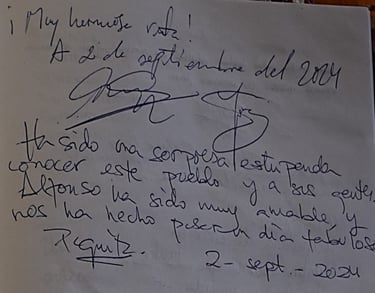 ¡Muy hermosa ruta!
A 2 de septiembre del 2024
Ha sido una sorpresa estupenda
conocer este pueblo y a sus gentes.
Alfonso ha sido muy amable y
nos ha hecho pasar un día fabuloso
2 - sept. - 2024